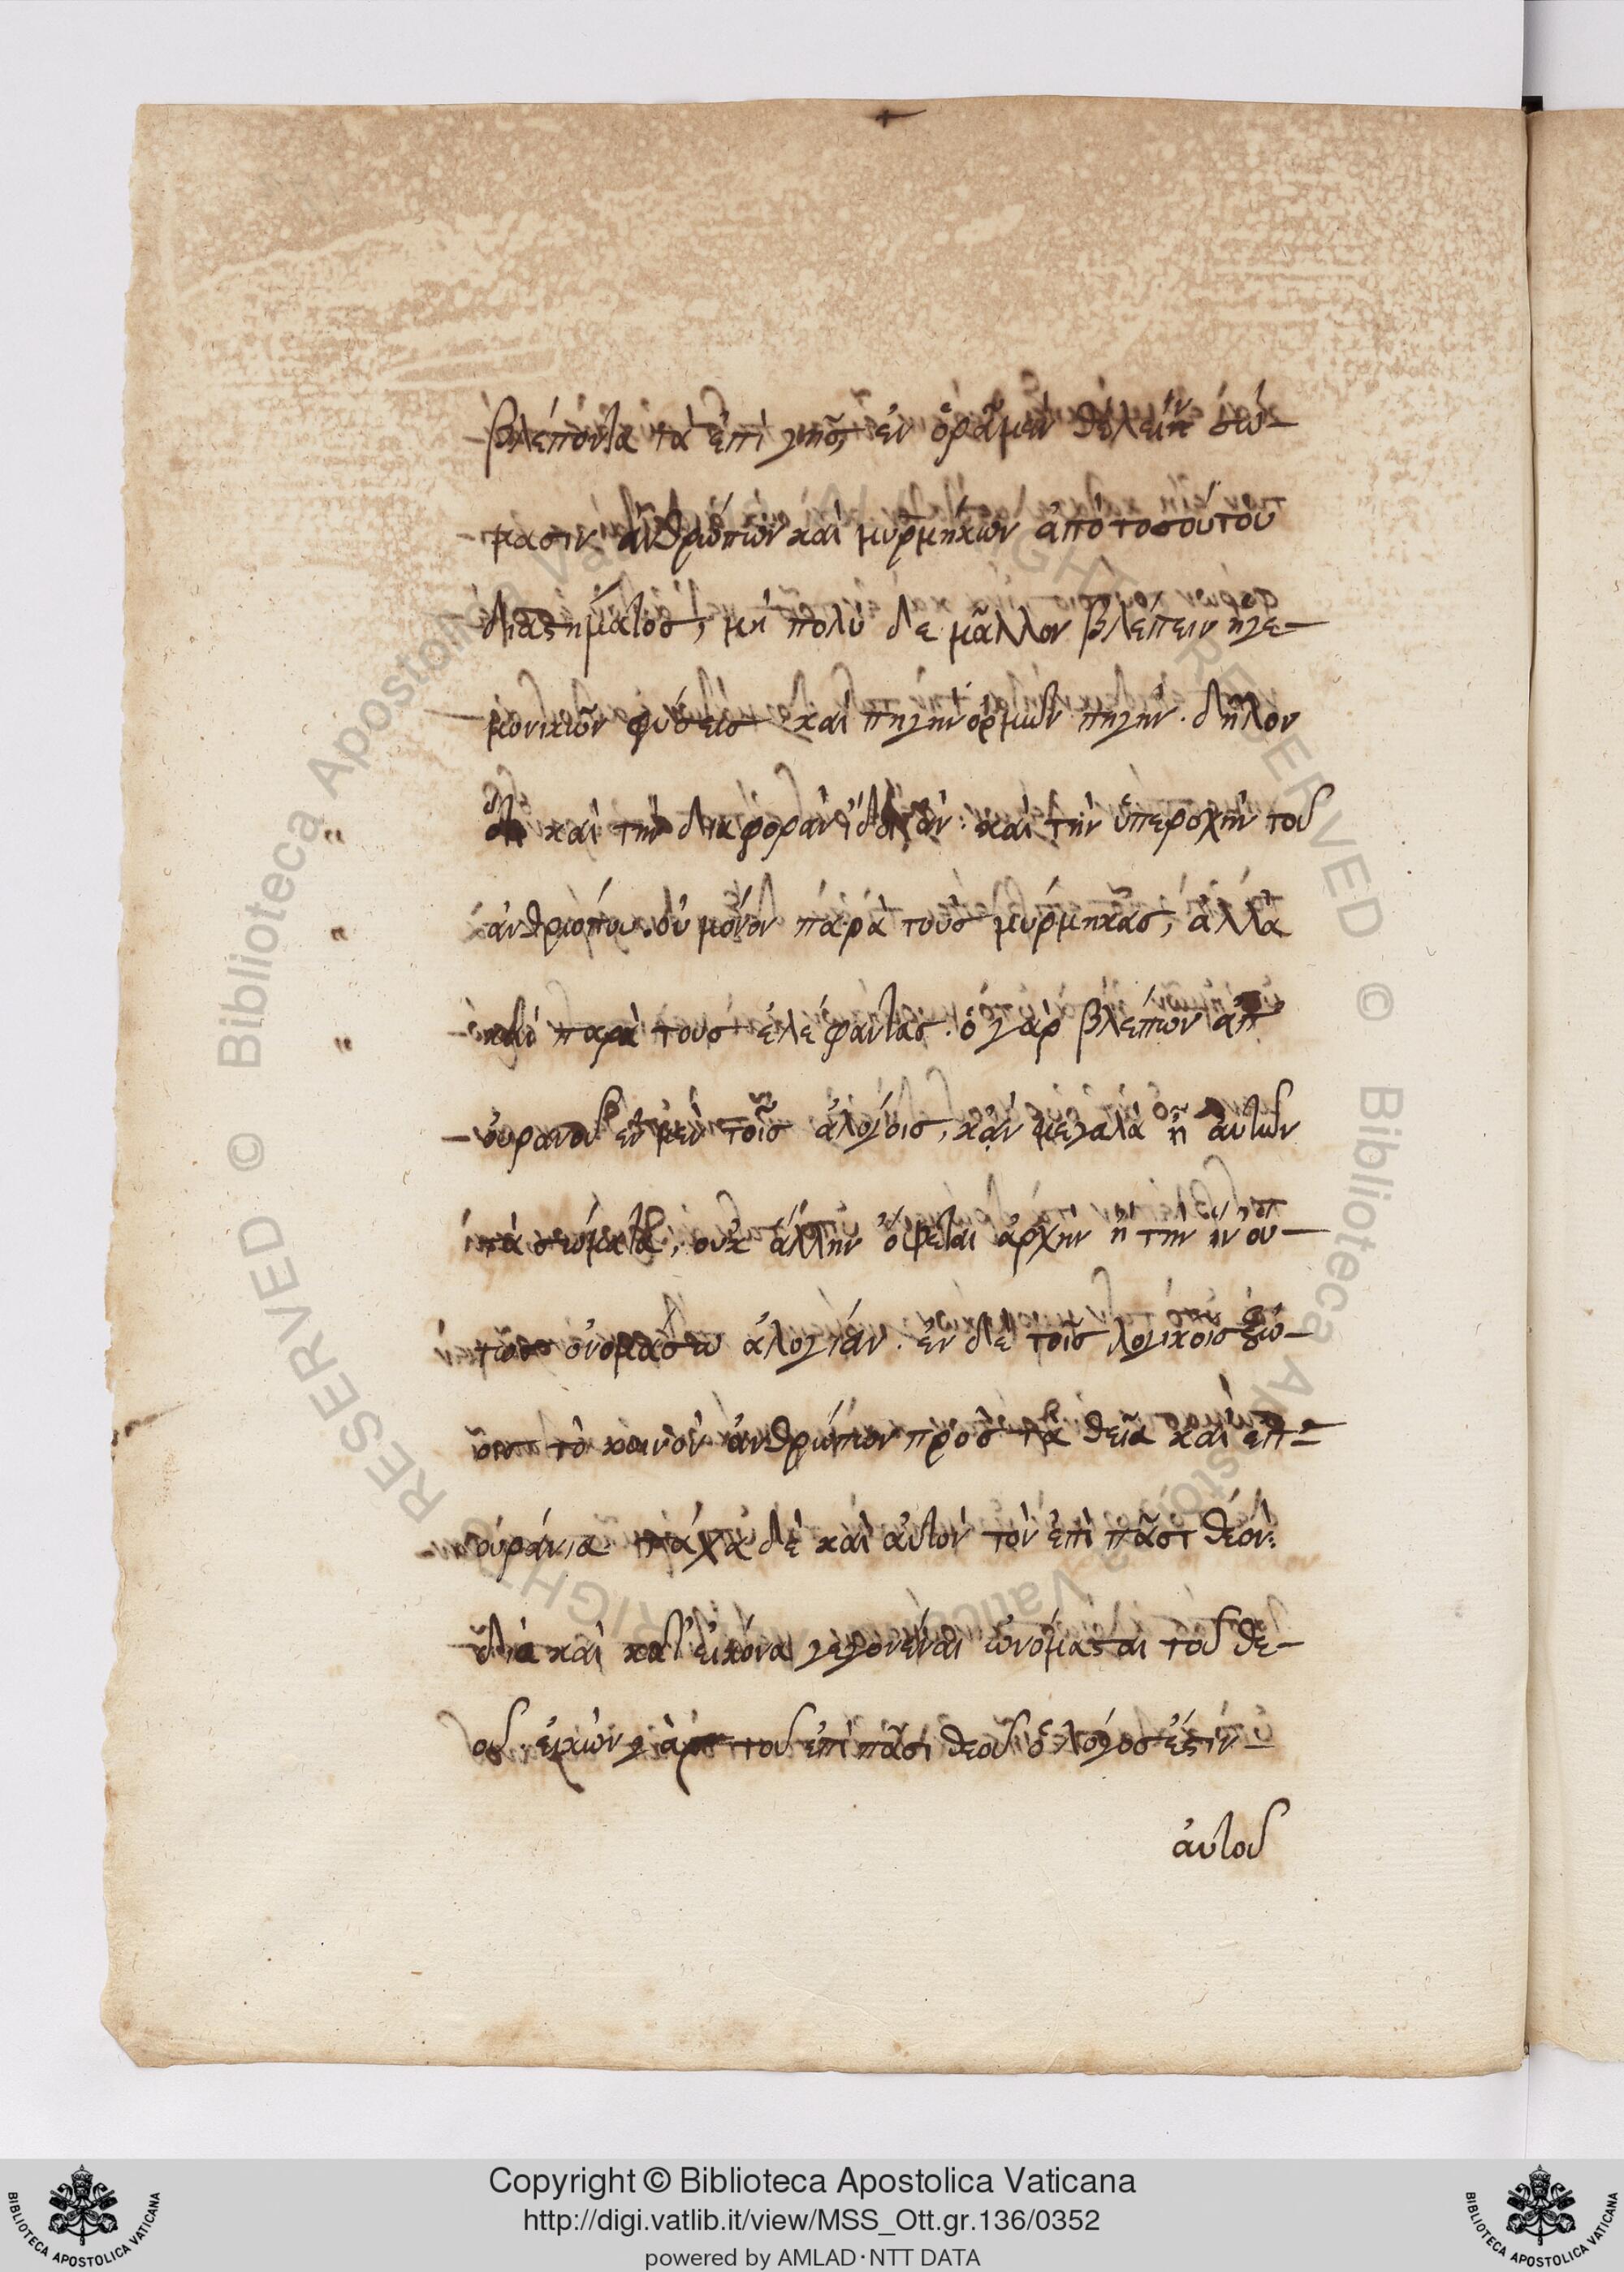 βλέποντα τὰ ἐπὶ γῆς, ἐν ὁρᾶμεν θέλειν σώ-
μασιν ἀνθρώπων καὶ μυρμήκων ἀπὸ τοσούτου
διαστήματος, μὴ πολὺ δε μᾶλλον βλέπειν ἡγε-
μονικῶν φύσεις καὶ πηγὴν ὁρμῶν πηγήν. δῆλον
δὴ καὶ τὴν διαφορὰν ἴδοι ἂν. καὶ τὴν ὑπεροχὴν τοῦ
ἀνθρώπου. οὐ μόνον παρὰ τοὺς μύρμηκας, ἀλλὰ
καὶ παρὰ τους ἐλέφαντας. ὁ γὰρ βλέπων ἀπ
οὐρανοῦ ἐν μὲν τοῖς ἀλόγοις, κἂν μεγάλα ἦ αὐτῶν
τὰ σώματα, οὐκ ἄλλην ὄψεται ἀρχὴν ἢ τὴν ἱν οὑ-
τως ὀνομάσω ἀλογίαν. ἐν δὲ τοῖς λογικοῖς
τὸ κοινὸν ἀνθρώπων πρὸς τὰ θεῖα καὶ ἐπ-
ουράνια τάχα δὲ καὶ αὐτὸν τὸν ἐπὶ πᾶσι θεόν:
διὰ καὶ κατ' εἰκόνα γεγονέναι ὠνόμασται τοῦ θε-
οῦ. εἰκὼν γὰρ τοῦ ἐπὶ πᾶσι θεοῦ ὁ λόγος ἐστὶν
αὐτοῦ
Copyright © Biblioteca Apostolica Vaticana
http://digi.vatlib.it/view/MSS_Ott.gr.136/0352
powered by AMLAD·NTT DATA
BIBLIOTECA APOSTOLICA VATICANA
BIBLIOTECA APOSTOLICA VATICANA